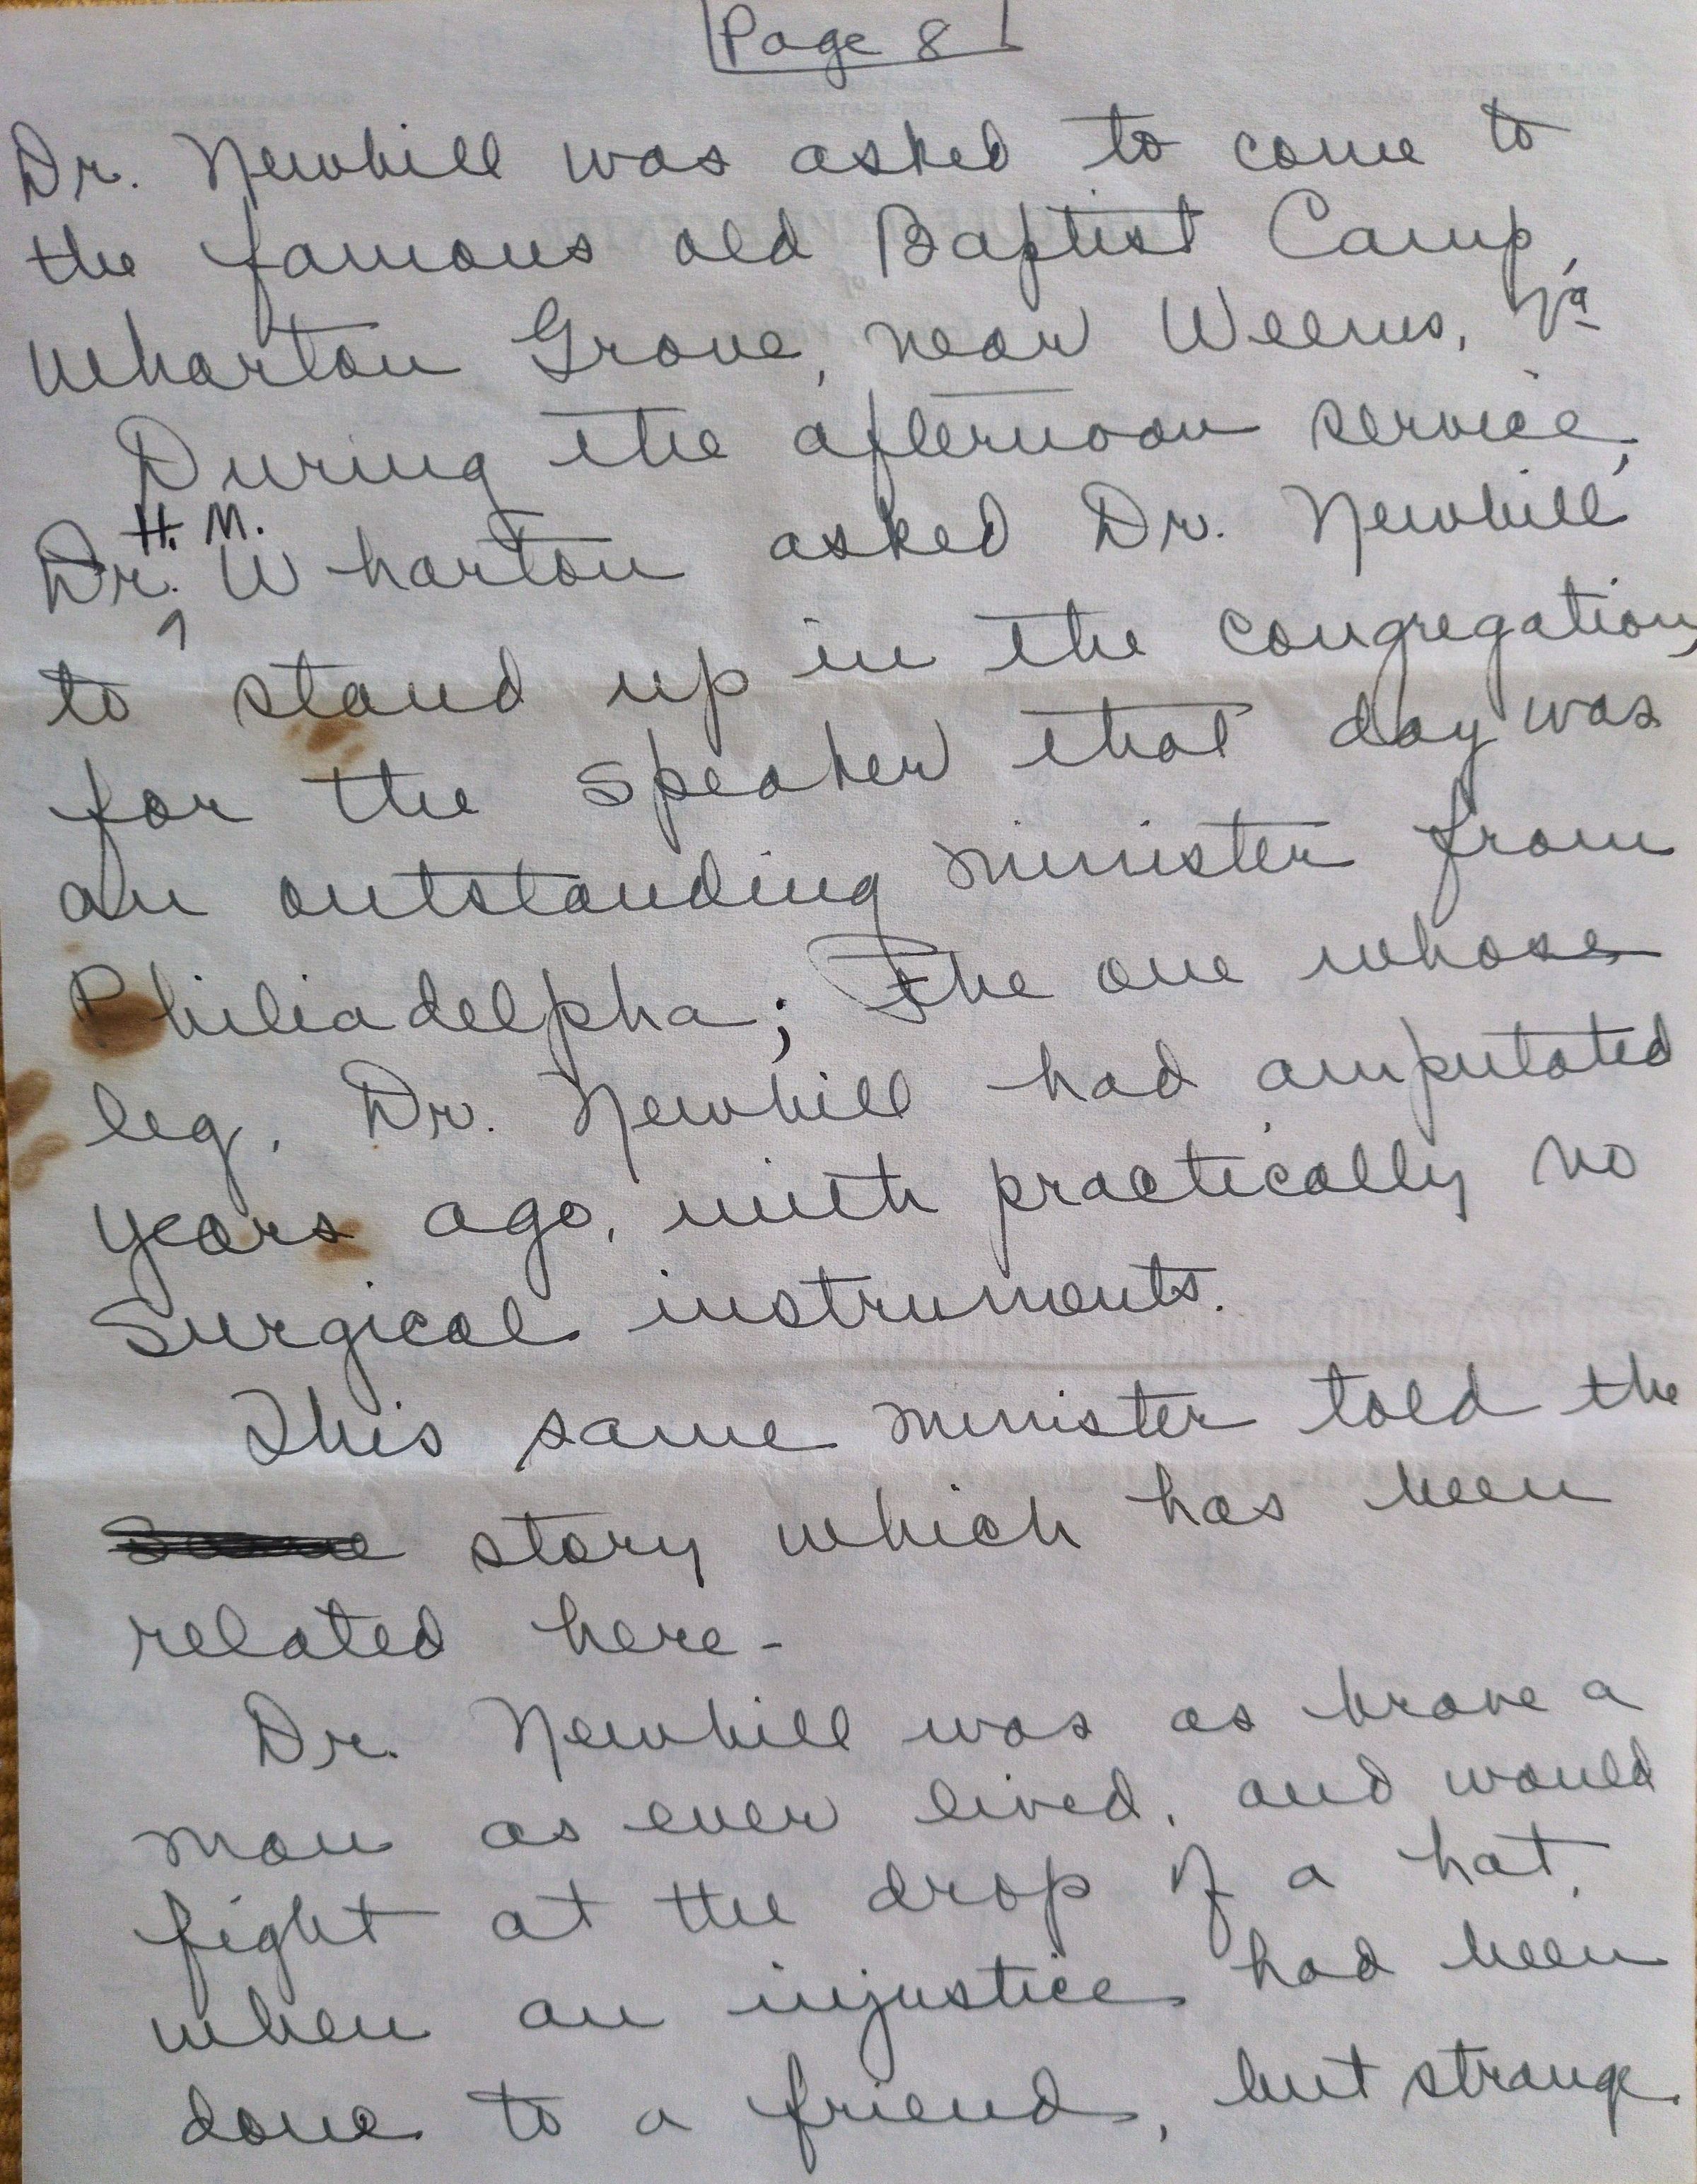 Page 8
Dr. Newbill was asked to come to
the famous old Baptist Camp,
Wharton Grove, near Weems, Va
During the afternoon service,
Dr. H. M. Wharton asked Dr. Newbill
to stand up in the congregation,
for the speaker that day was
an outstanding minister from
Philiadelpha; The one whose
leg, Dr. Newbill had amputated
years ago, with practically no
Surgical instruments.
This same minister told the
story which has been
related here-
Dr. Newbill was as brave a
man as ever lived, and would
fight at the drop of a hat,
when an injustice had been
done to a friend, but strange